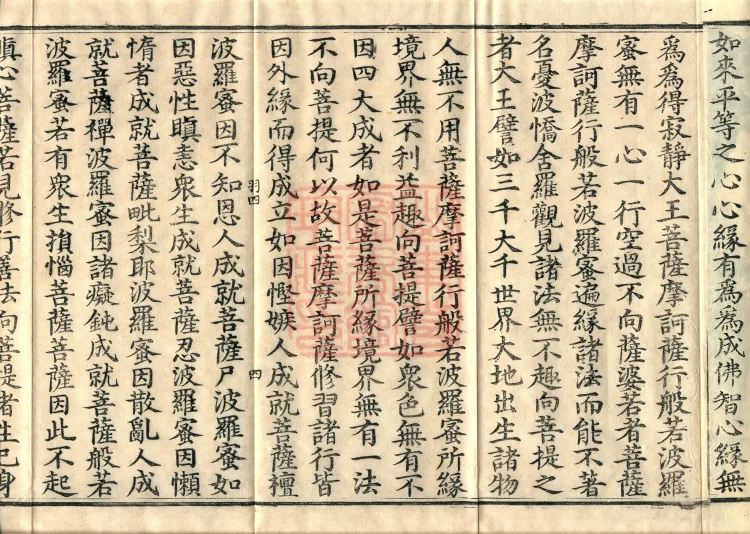 如來平等之心心緣有爲爲成佛智心緣無
爲爲得寂靜大王菩薩摩訶薩行般若波羅
蜜無有一心一行空過不向薩婆若者菩薩
摩訶薩行般若波羅蜜遍緣諸法而能不著
名憂波憍舍羅觀見諸法無不趣向菩提之
者大王譬如三千大千世界大地出生諸物
人無不用菩薩摩訶薩行般若波羅蜜所緣
境界無不利益趣向菩提譬如衆色無有不
因四大成者如是菩薩所緣境界無有一法
不向菩提何以故菩薩摩訶薩修習諸行皆
因外緣而得成立如因慳嫉人成就菩薩檀
羽四
四
波羅蜜因不知恩人成就菩薩尸波羅蜜如
因惡性瞋恚衆生成就菩薩忍波羅蜜因懶
惰者成就菩薩毗梨耶波羅蜜因散亂人成
就菩薩禪波羅蜜因諸癡鈍成就菩薩般若
波羅蜜若有衆生損惱菩薩菩薩因此不起
瞋心菩薩若見修行善法向菩提者生己身